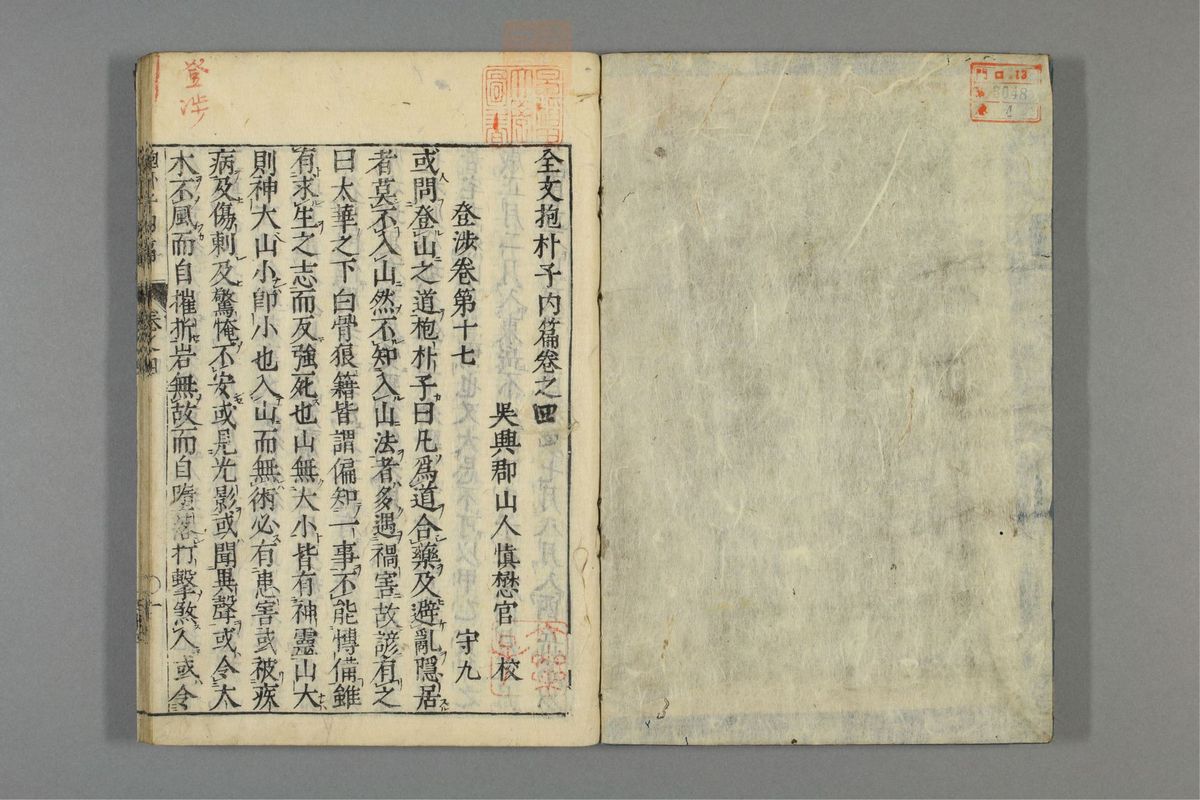 全文抱朴子内篇卷之四
吳興郡山人慎懋官 校
登涉卷第十七 守九
或問登山之道抱朴子曰凡爲道合藥及避亂隱居
者莫不入山然不知入山法者多遇禍害故諺有之
曰太華之下白骨狼籍皆謂偏知一事不能博備雖
有求生之志而反強死也山無大小皆有神靈山大
則神大山小卽小也入山而無術必有患害或被疾
病及傷刺及驚惋不安或見光影或聞異聲或令大
木不風而自摧折岩無故而自墮落打擊煞人或令
登涉
13
8048
4